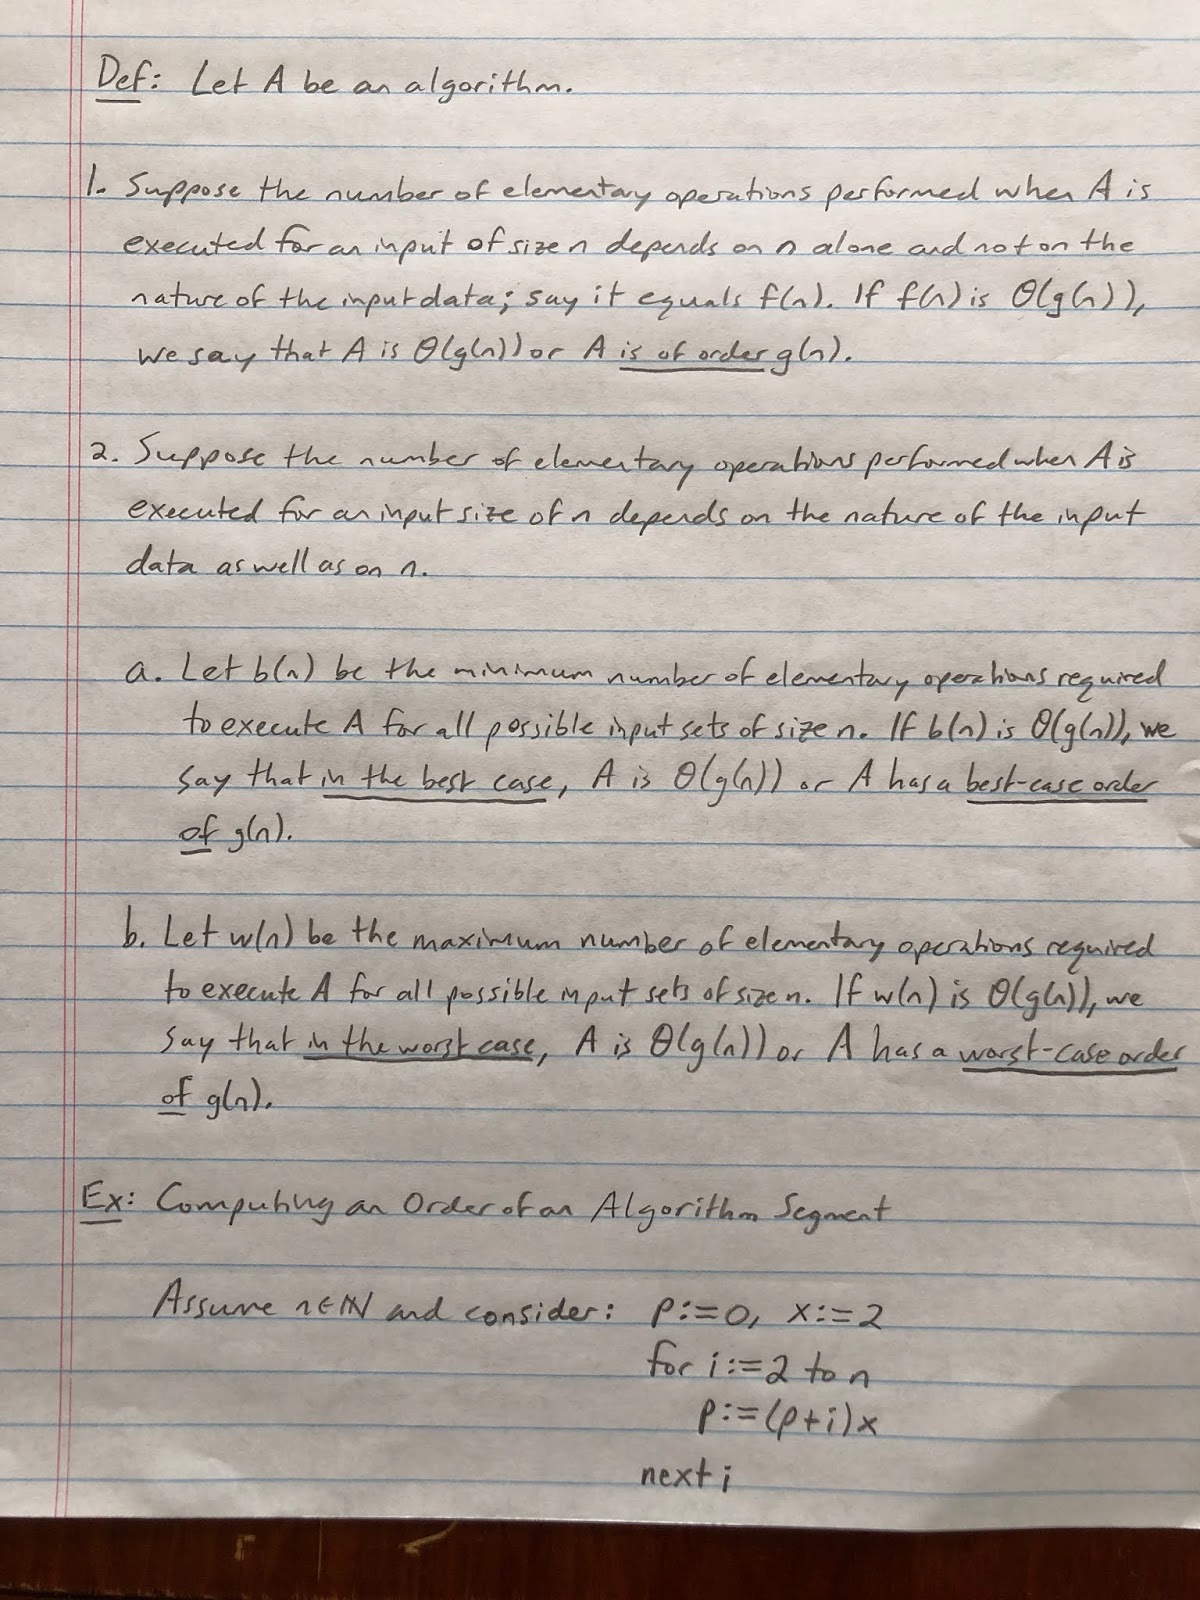 Def: Let A be an algorithm.
1. Suppose the number of elementary operations performed when A is
executed for an input of size n depends on n alone and not on the
nature of the input data; say it equals f(n). If f(n) is Θ(g(n)),
we say that A is Θ(g(n)) or A is of order g(n).
2. Suppose the number of elementary operations performed when A is
executed for an input size of n depends on the nature of the input
data as well as on n.
a. Let b(n) be the minimum number of elementary operations required
to execute A for all possible input sets of size n. If b(n) is Θ(g(n)), we
say that in the best case, A is Θ(g(n)) or A has a best-case order
of g(n).
b. Let w(n) be the maximum number of elementary operations required
to execute A for all possible input sets of size n. If w(n) is Θ(g(n)), we
say that in the worst case, A is Θ(g(n)) or A has a worst-case order
of g(n).
Ex: Computing an Order of an Algorithm Segment
Assume n∈ℕ and consider: p:=0, x:=2
for i:=2 to n
p:=(p+i)x
next i